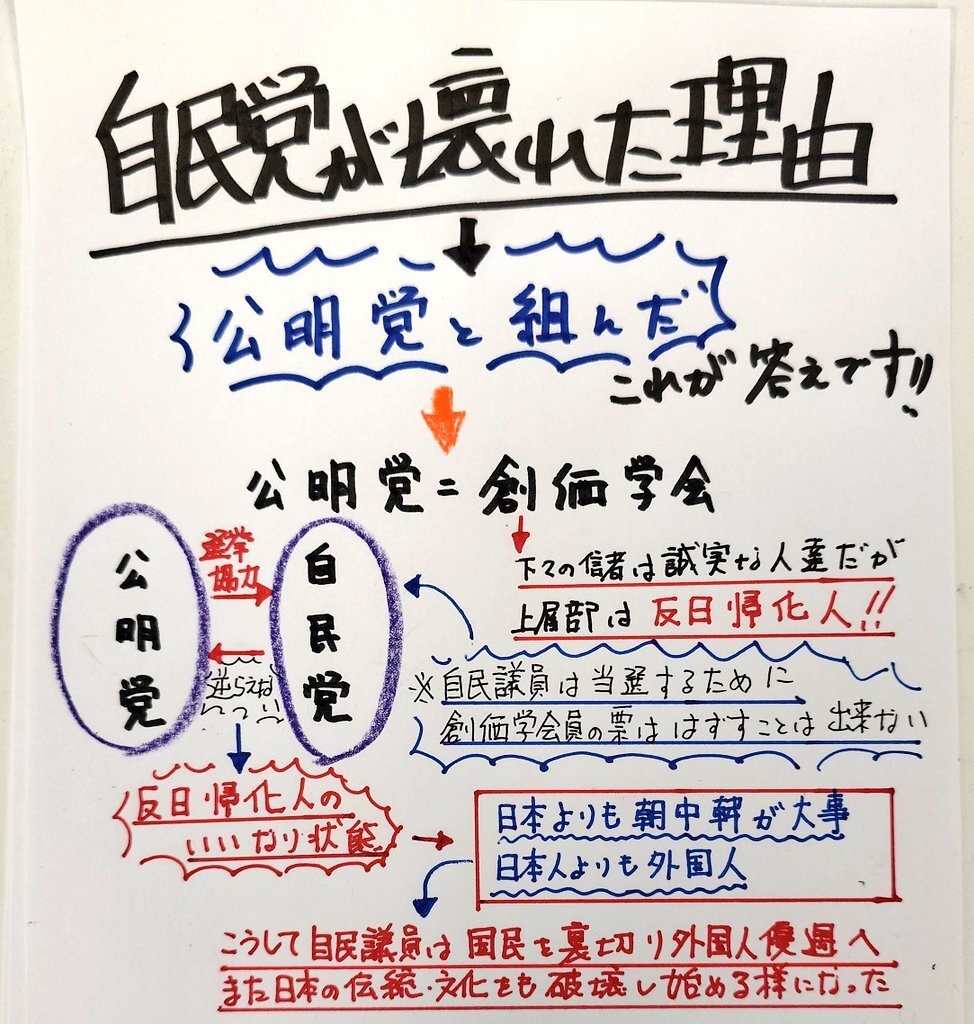 自民党が壊れた理由
公明党と組んだ
これが答えです!!
公明党=創価学会
公明党
選挙
協力
自民党
逆らえない
下々の信者は誠実な人達だが
上層部は反日帰化人!!
※自民議員は当選するために
創価学会員の票ははずすことは出来ない
反日帰化人の
いいなり状態
日本よりも朝中韓が大事
日本人よりも外国人
こうして自民議員は国民を裏切り外国人優遇へ
また日本の伝統・文化をも破壊し始める様になった